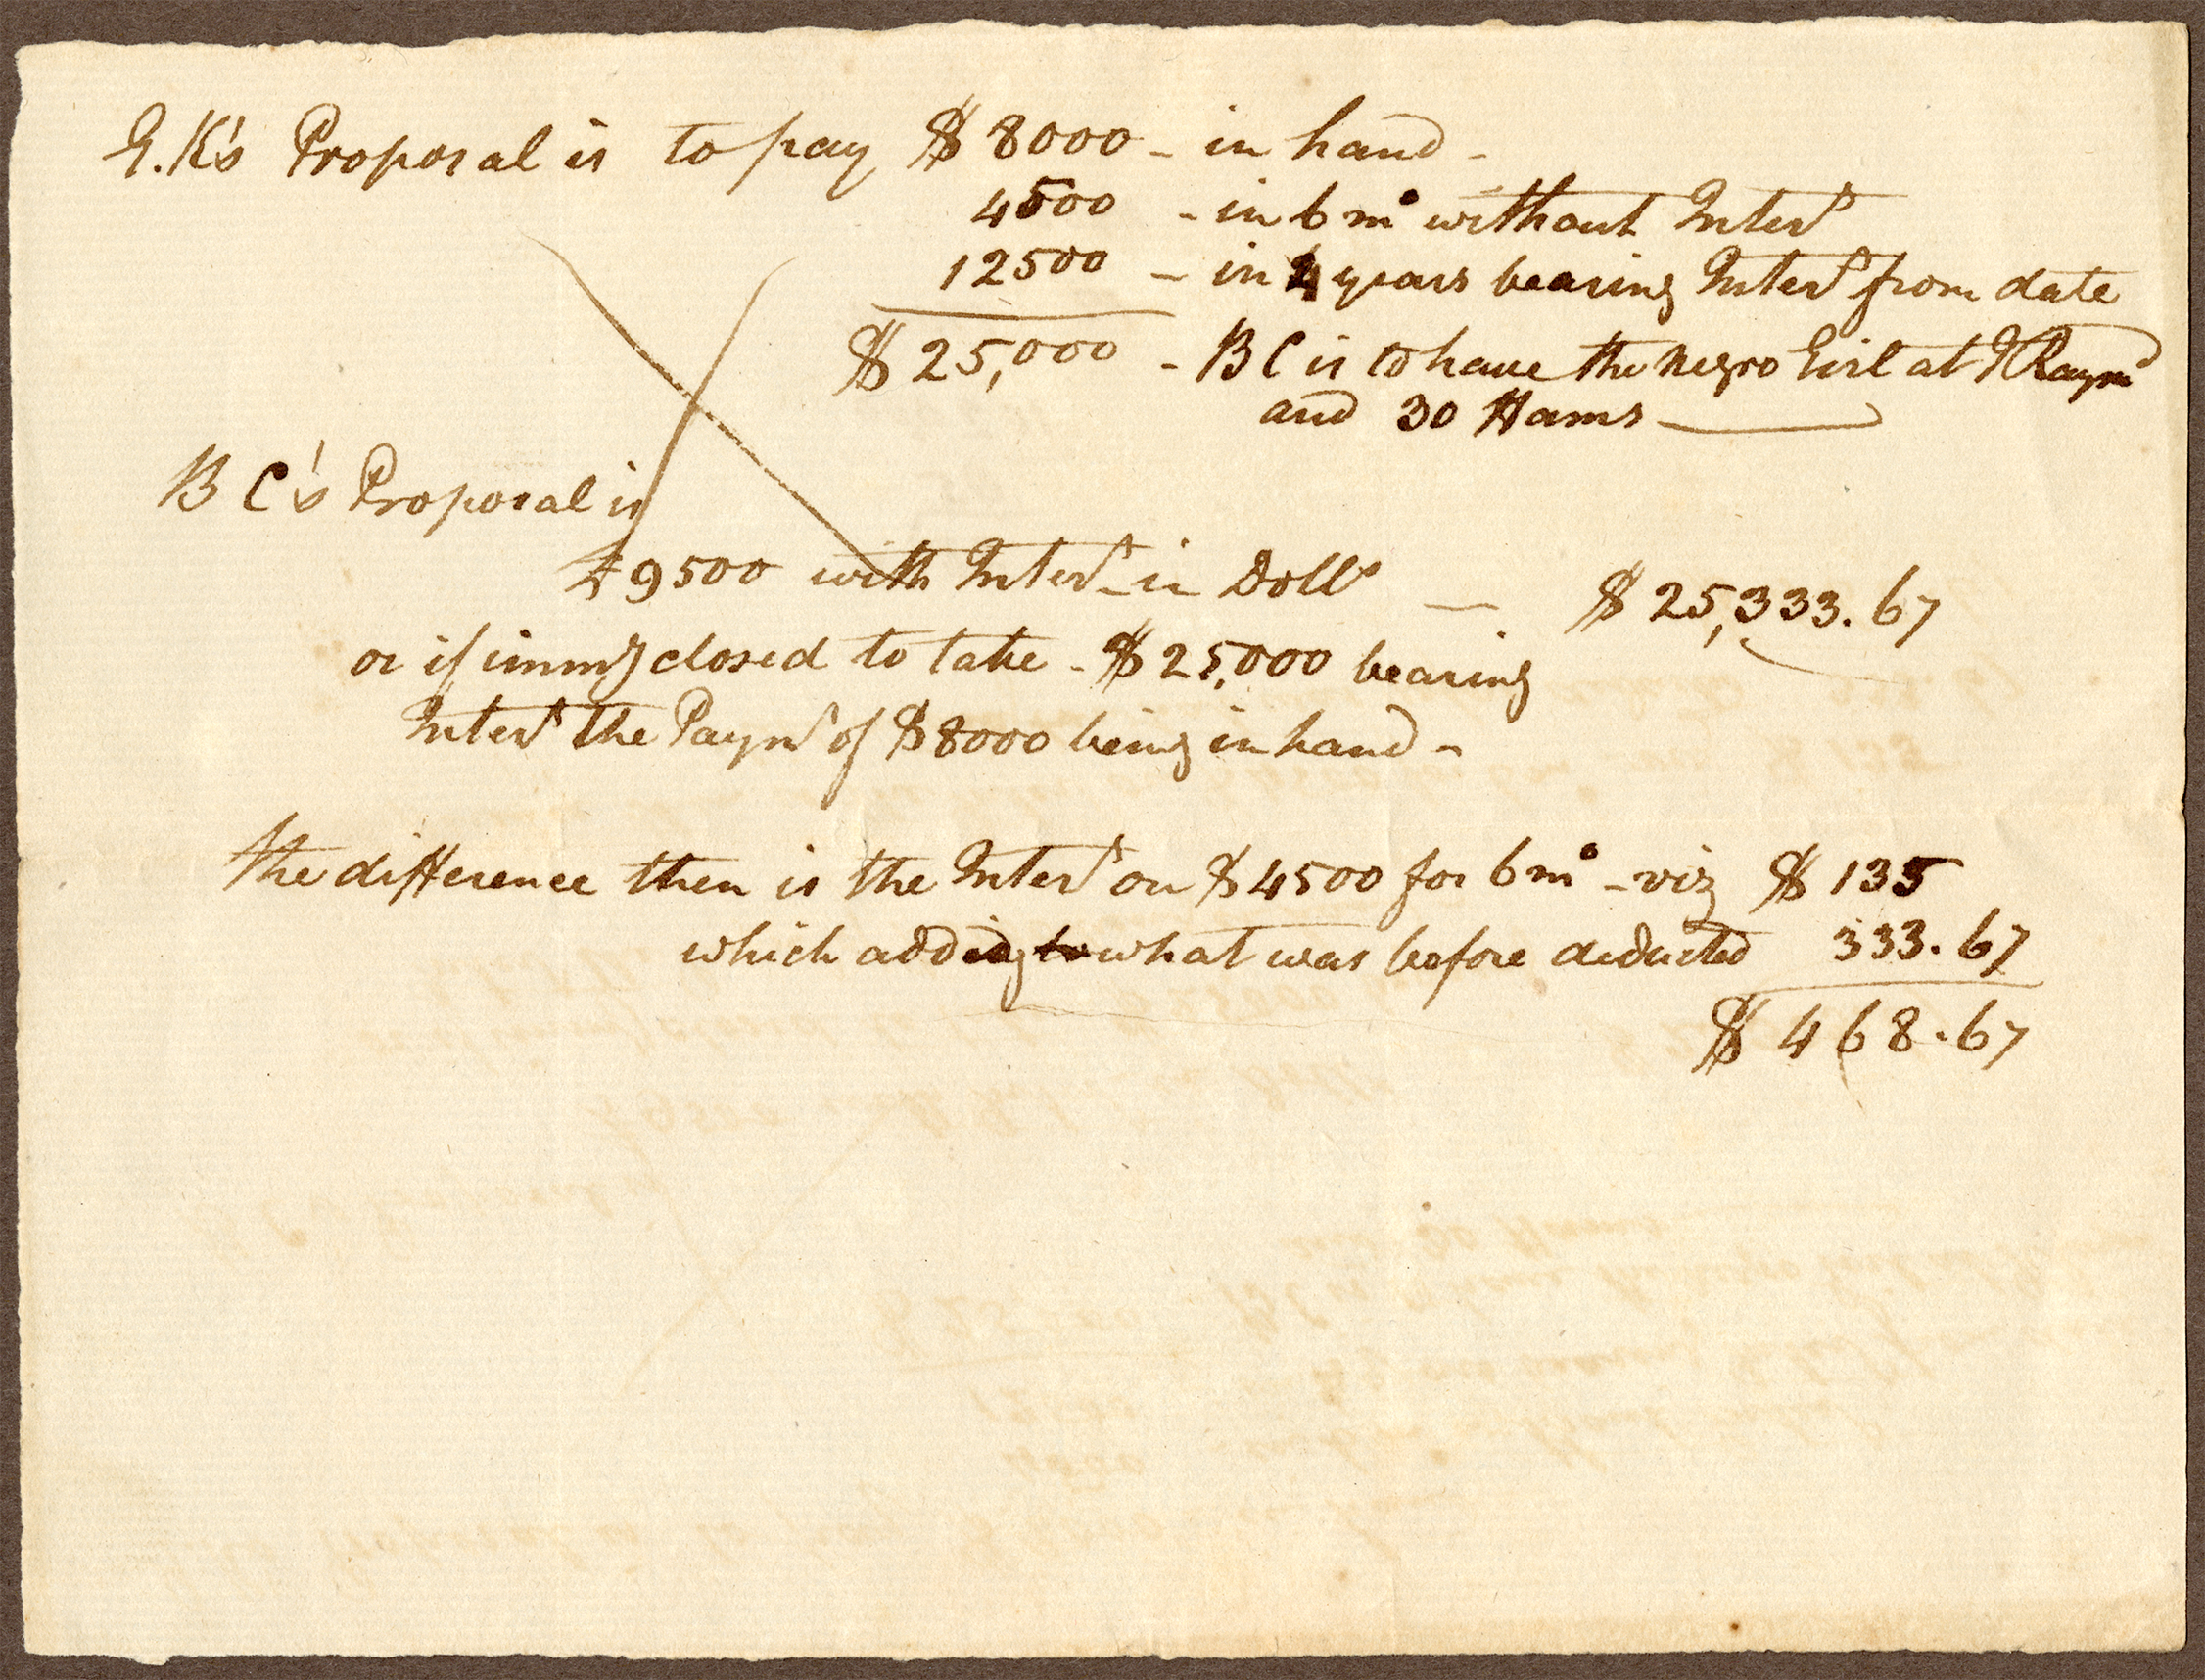 G.K's Proposal is to pay $8000 - in hand -
4500 - in 6 mo without Intert
12500 - in 4 years bearing Intert from date
$25,000 - BC is to have the negro Girl at
and 30 Hams
B C's Proposal is
£9500 with Intert in Dolls — $25,333.67
or if immy closed to take - $25,000 bearing
Intert the Paymt of $8000 being in hand -
the difference then is the Intert on $4500 for 6 mo - viz $135
which adding to what was before deducted 333.67
$468.67